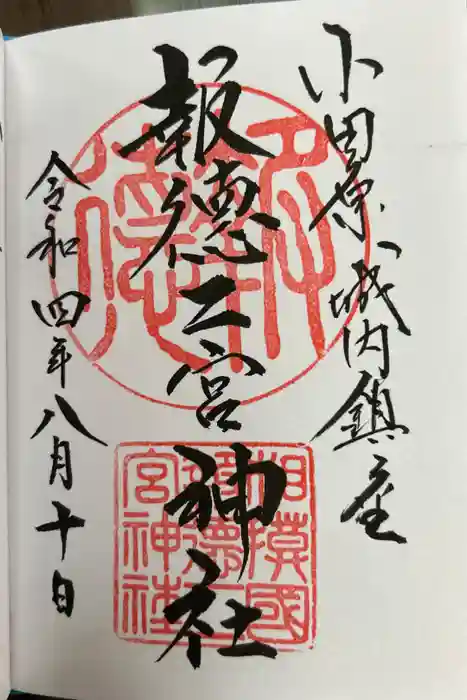 小田原城内鎮座
報徳二宮神社
令和四年八月十日
報徳
相摸國
報徳二
宮神社